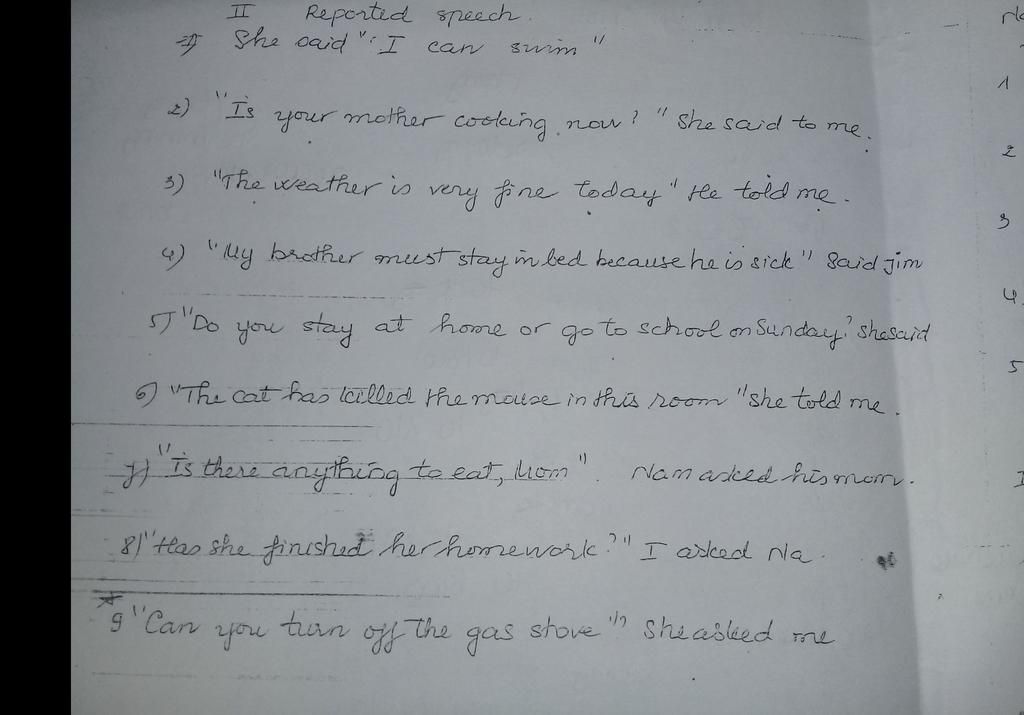 II Reported speech.
1) She said ": I can swim"
2) "Is your mother cooking now? " She said to me.
3) "The weather is very fine today" He told me.
4) "My brother must stay in bed because he is sick" Said Jim
5) "Do you stay at home or go to school on Sunday? she said
6) "The cat has killed the mouse in this room "she told me.
7) "Is there anything to eat, Mom". Nam asked his mom.
8) "Has she finished her homework?" I asked Na.
9 "Can you turn off the gas stove"? She asked me
1
2
3
4.
5